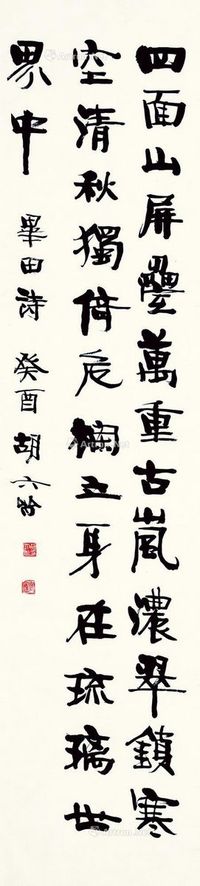 四面山屏疊萬重古嵐濃翠鎖寒
空清秋獨倚危欄立身在琉璃世
界中
畢田詩 癸酉 胡六皆